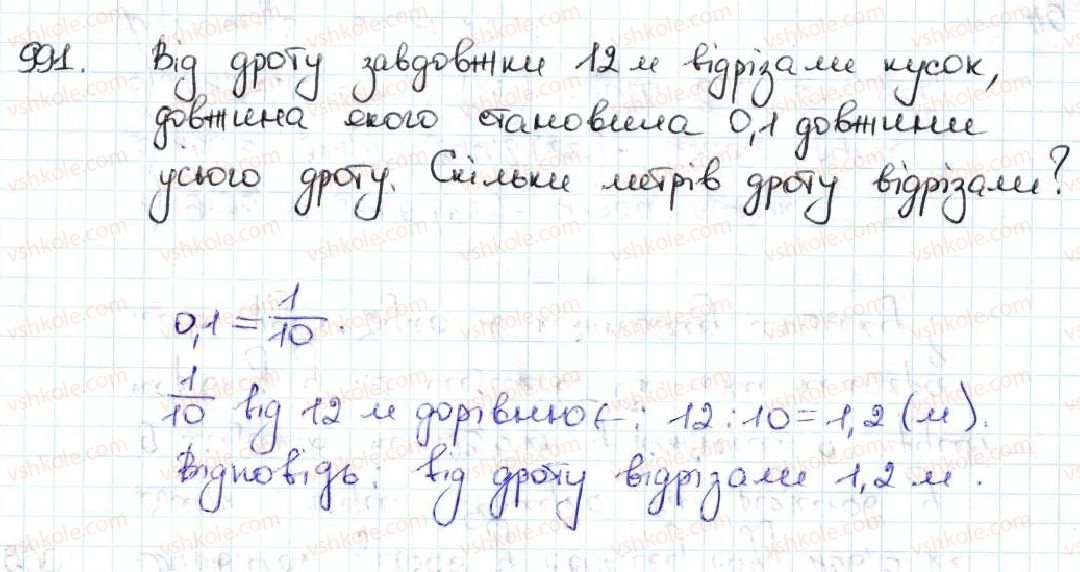 991. Від дроту завдовжки 12 м відрізали кусок,
довжина якого становила 0,1 довжини
усього дроту. Скільки метрів дроту відрізали?
0,1 = 1/10.
1/10 від 12 м дорівнює: 12 : 10 = 1,2 (м).
Відповідь: від дроту відрізали 1,2 м.